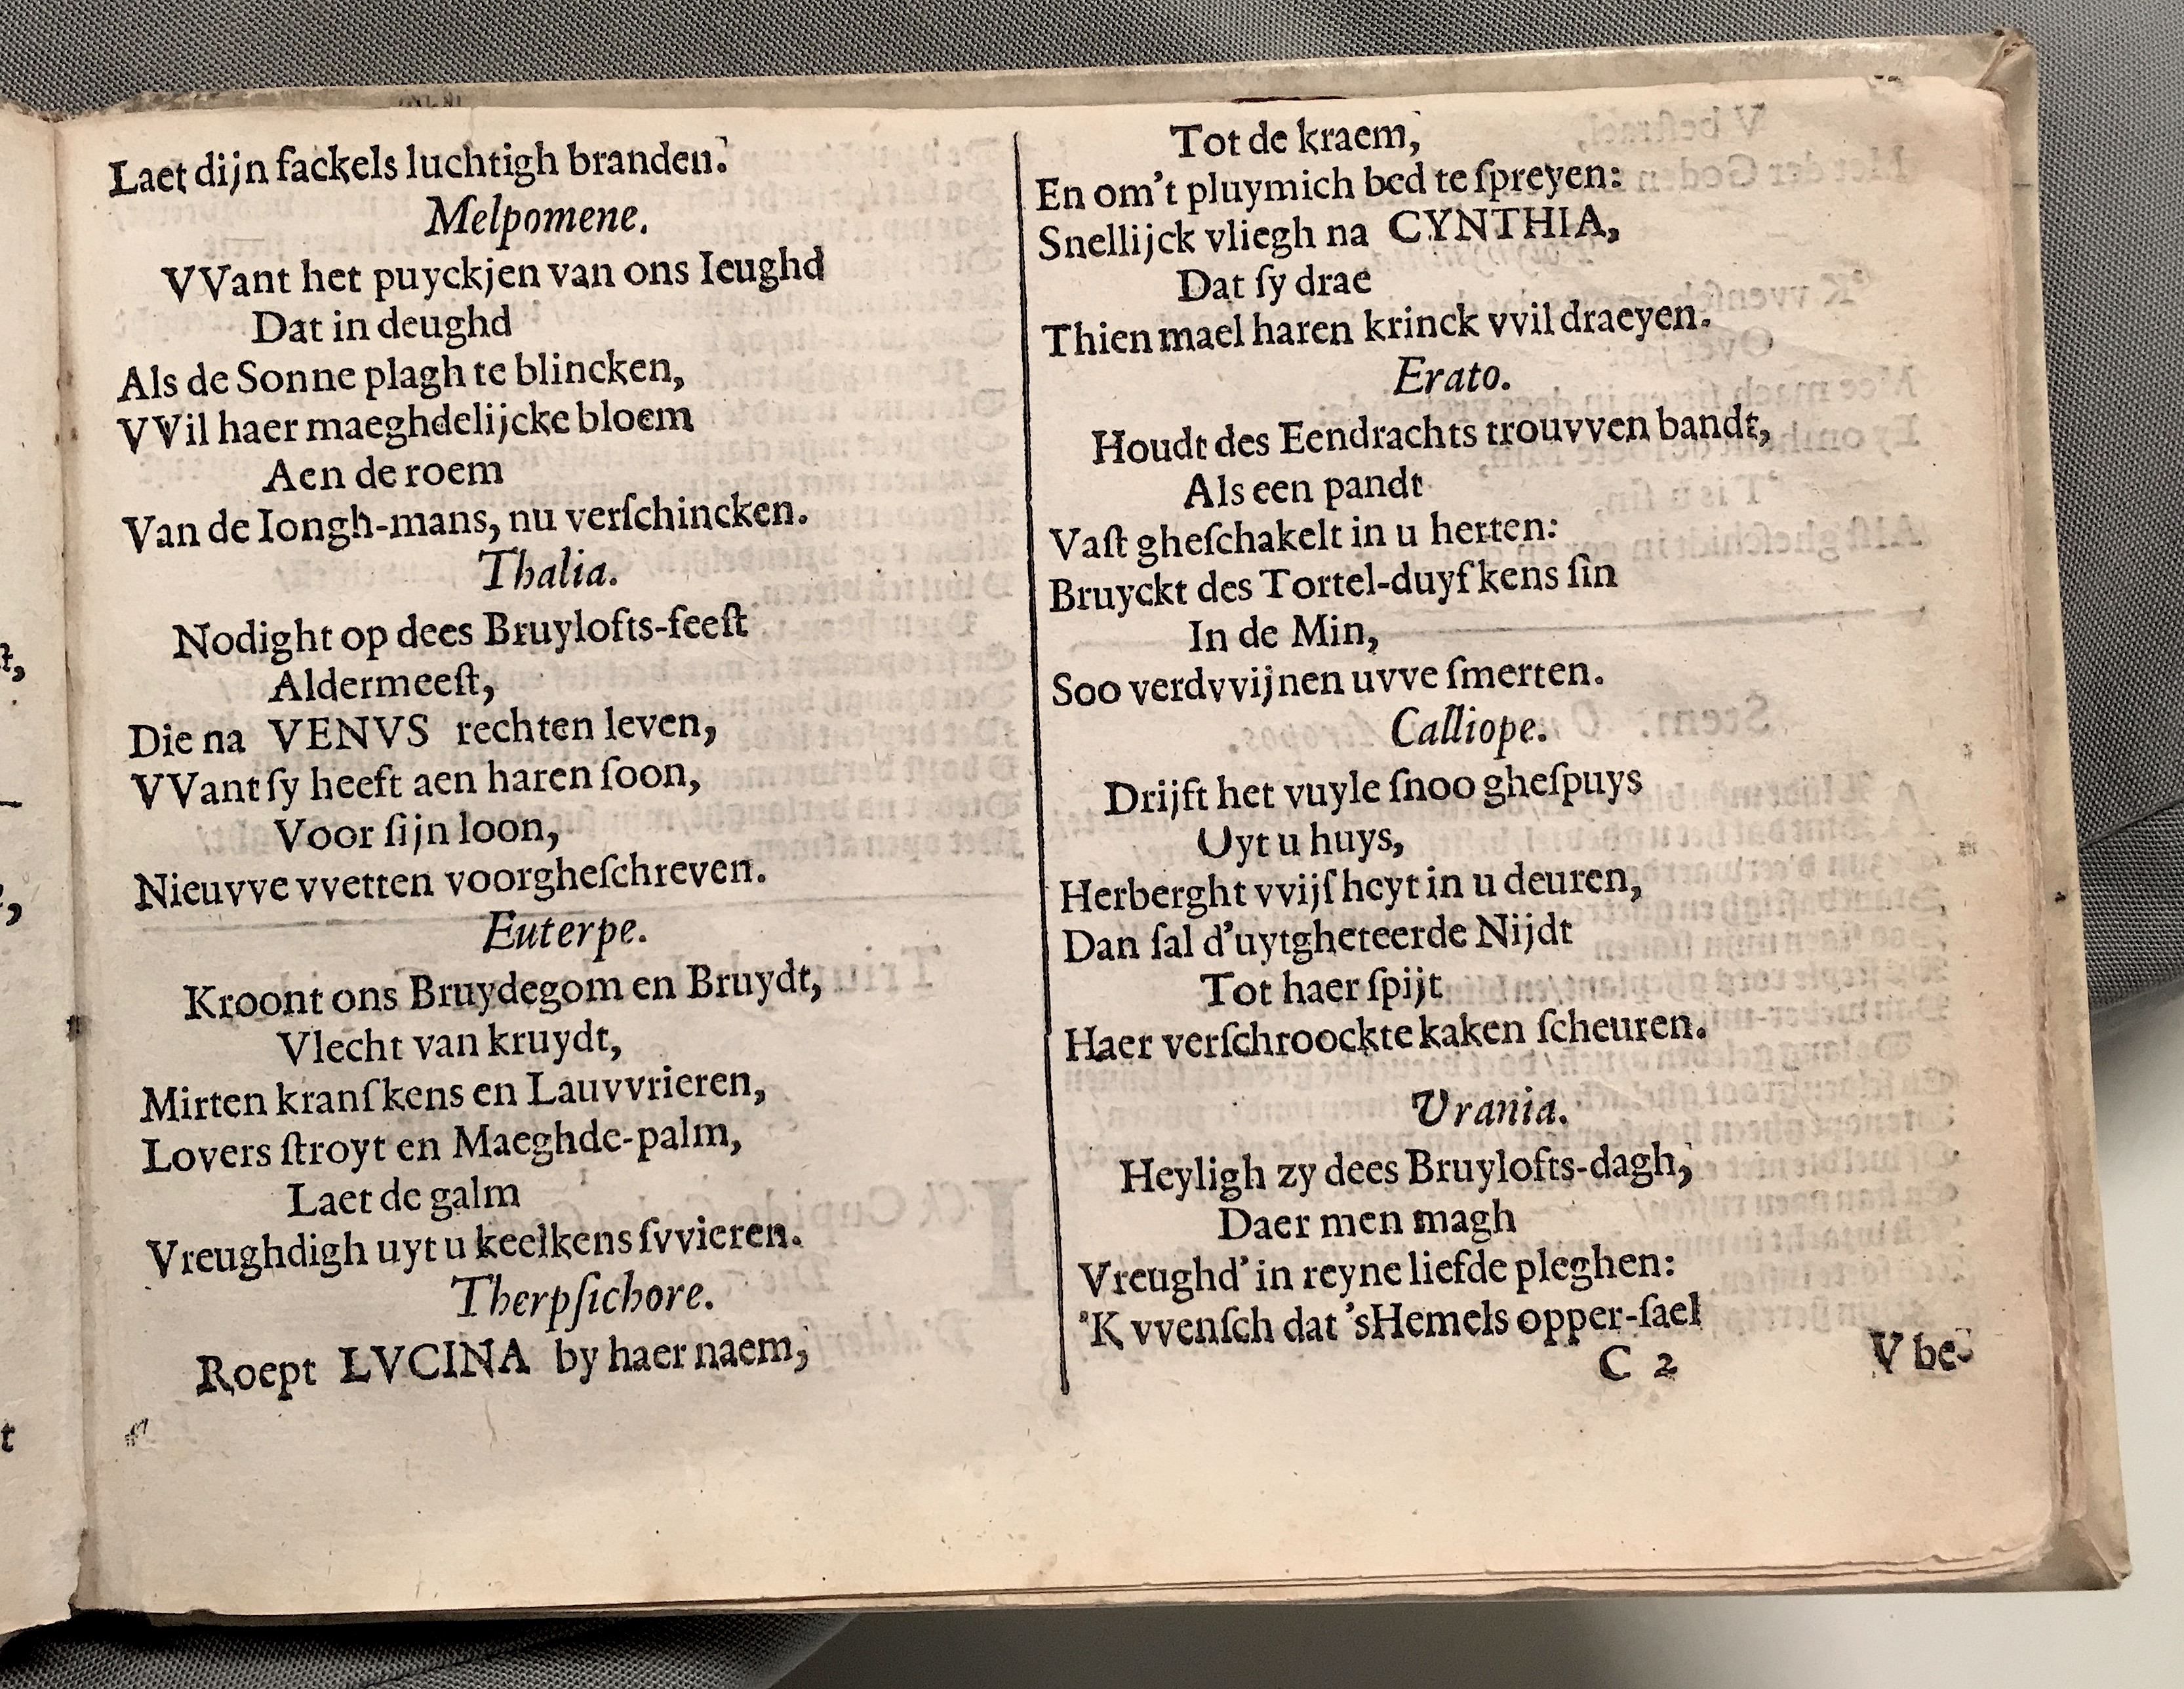 Laet dijn fackels luchtigh branden.
Melpomene.
VVant het puyckjen van ons Ieughd
Dat in deughd
Als de Sonne plagh te blincken,
VVil haer maeghdelijcke bloem
Aen de roem
Van de Iongh-mans, nu verſchincken.
Thalia.
Nodight op dees Bruylofts-feeſt
Aldermeeſt,
Die na VENVS rechten leven,
VVant ſy heeft aen haren ſoon,
Voor ſijn loon,
Nieuvve vvetten voorgheſchreven.
Euterpe.
Kroont ons Bruydegom en Bruydt,
Vlecht van kruydt,
Mirten kranſkens en Lauvvrieren,
Lovers ſtroyt en Maeghde-palm,
Laet de galm
Vreughdigh uyt u keelkens ſvvieren.
Therpſichore.
Roept LVCINA by haer naem,
Tot de kraem,
En om't pluymich bed te ſpreyen:
Snellijck vliegh na CYNTHIA,
Dat ſy drae
Thien mael haren krinck vvil draeyen.
Erato.
Houdt des Eendrachts trouvven bandt,
Als een pandt
Vaſt gheſchakelt in u herten:
Bruyckt des Tortel-duyfkens ſin
In de Min,
Soo verdvvijnen uvve ſmerten.
Calliope.
Drijft het vuyle ſnoo gheſpuys
Uyt u huys,
Herberght vvijſheyt in u deuren,
Dan ſal d'uytgheteerde Nijdt
Tot haer ſpijt
Haer verſchroockte kaken ſcheuren.
Vrania.
Heyligh zy dees Bruylofts-dagh,
Daer men magh
Vreughd' in reyne liefde pleghen:
'K vvenſch dat 'sHemels opper-ſael
C 2 V be-